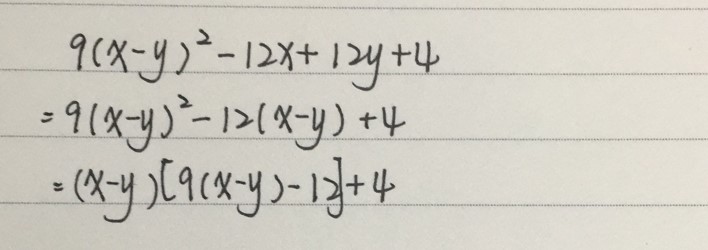 9(x-y)²-12x+12y+4
=9(x-y)²-12(x-y)+4
=(x-y)[9(x-y)-12]+4